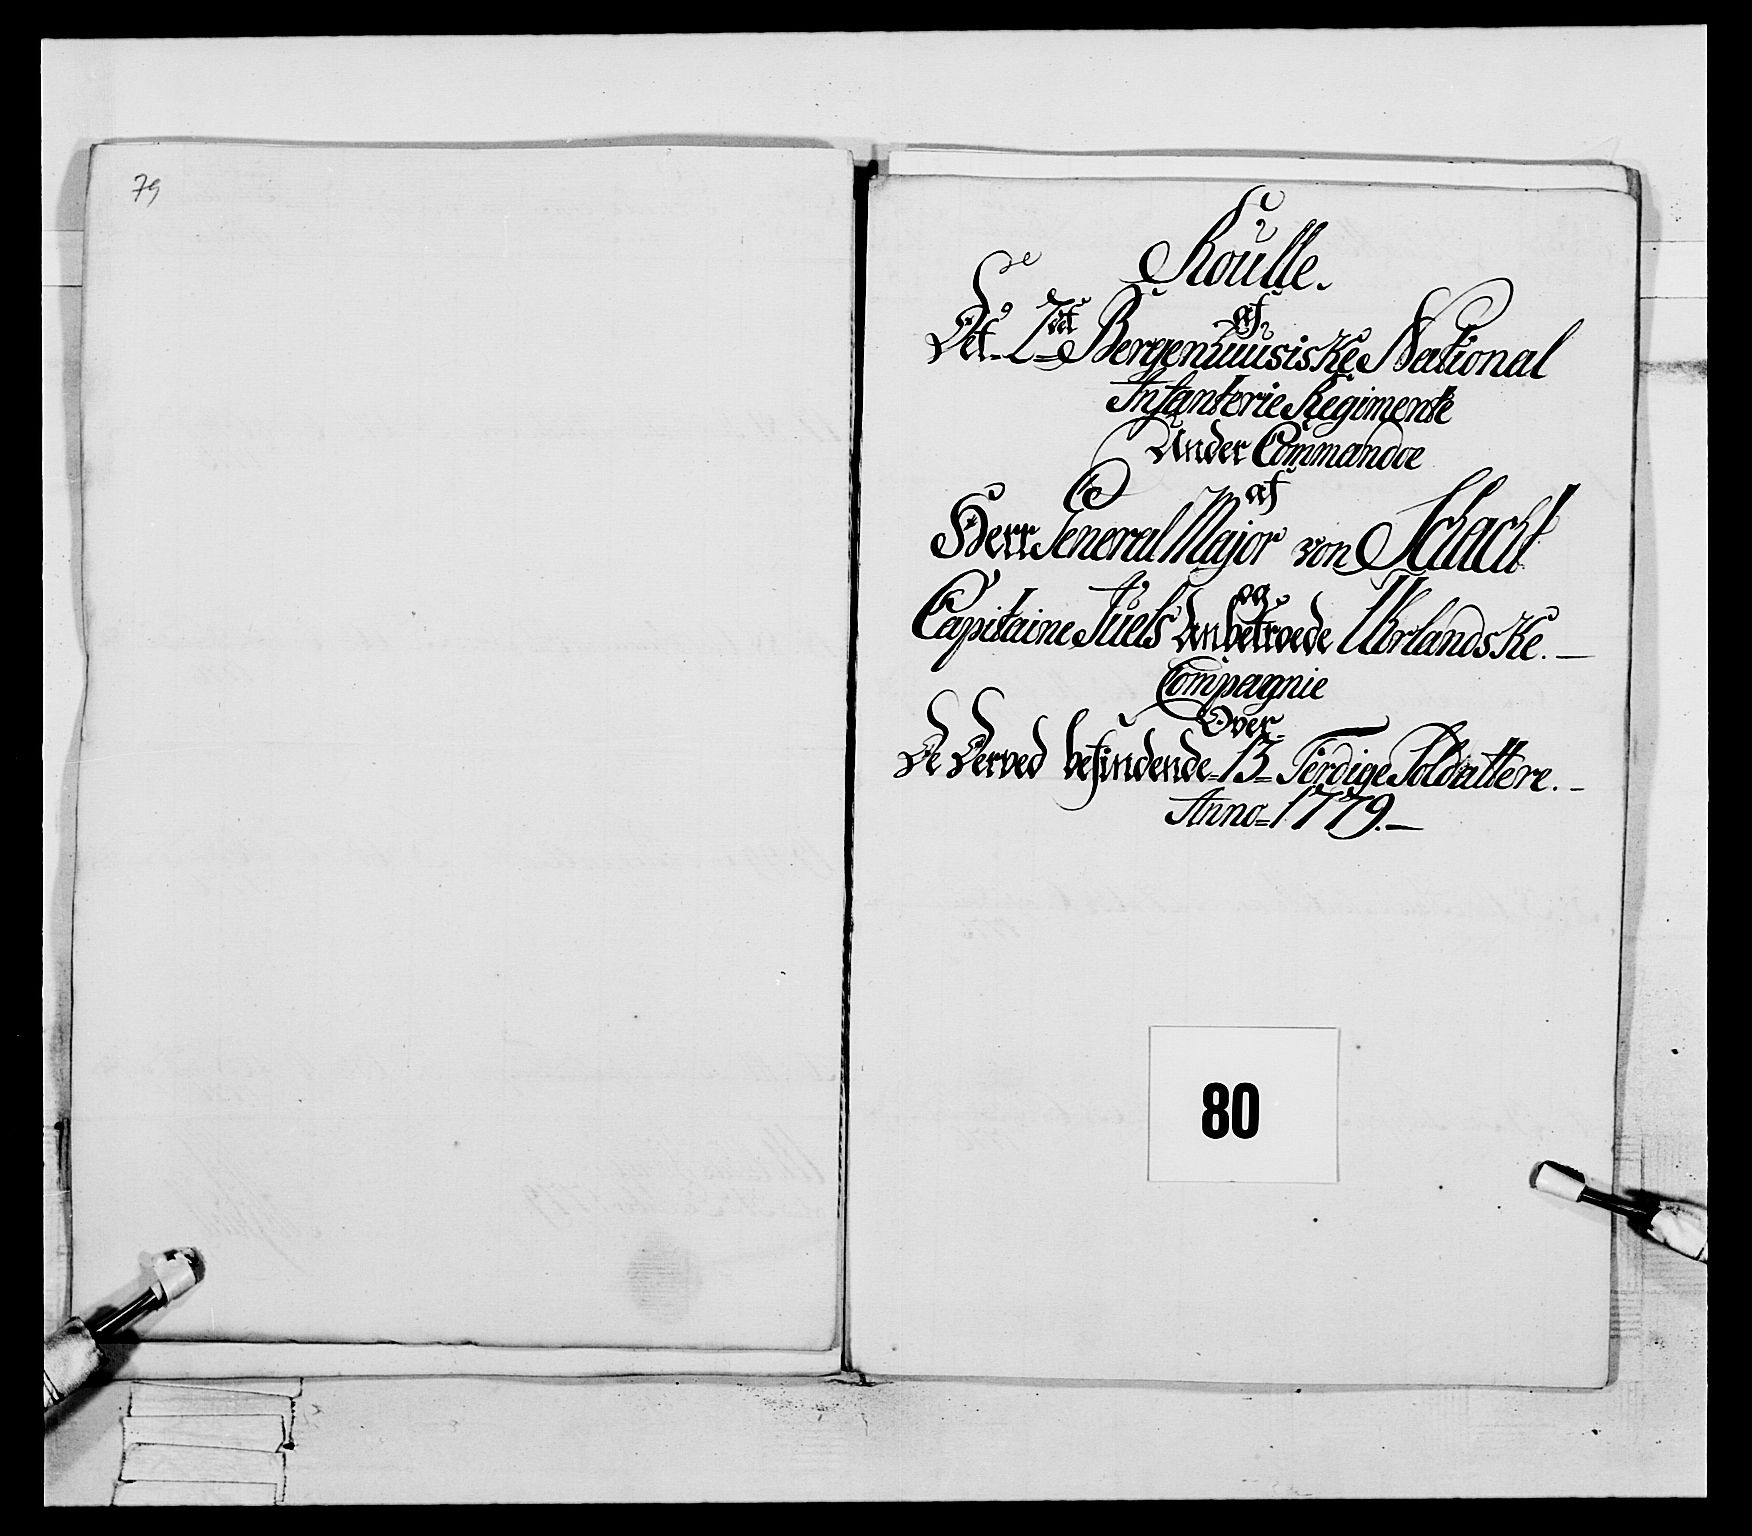 79
Roulle.
af
Det 2det Bergenhuusiske National
Infanterie Regimente
Under Commandoe
af
Herr General Major von Schacht
og
Capitaine Juels Anbetroede Uhrlandske.
Compagnie
Over
De Derved befindende 13 Færdige Soldattere.
Anno 1779.
80